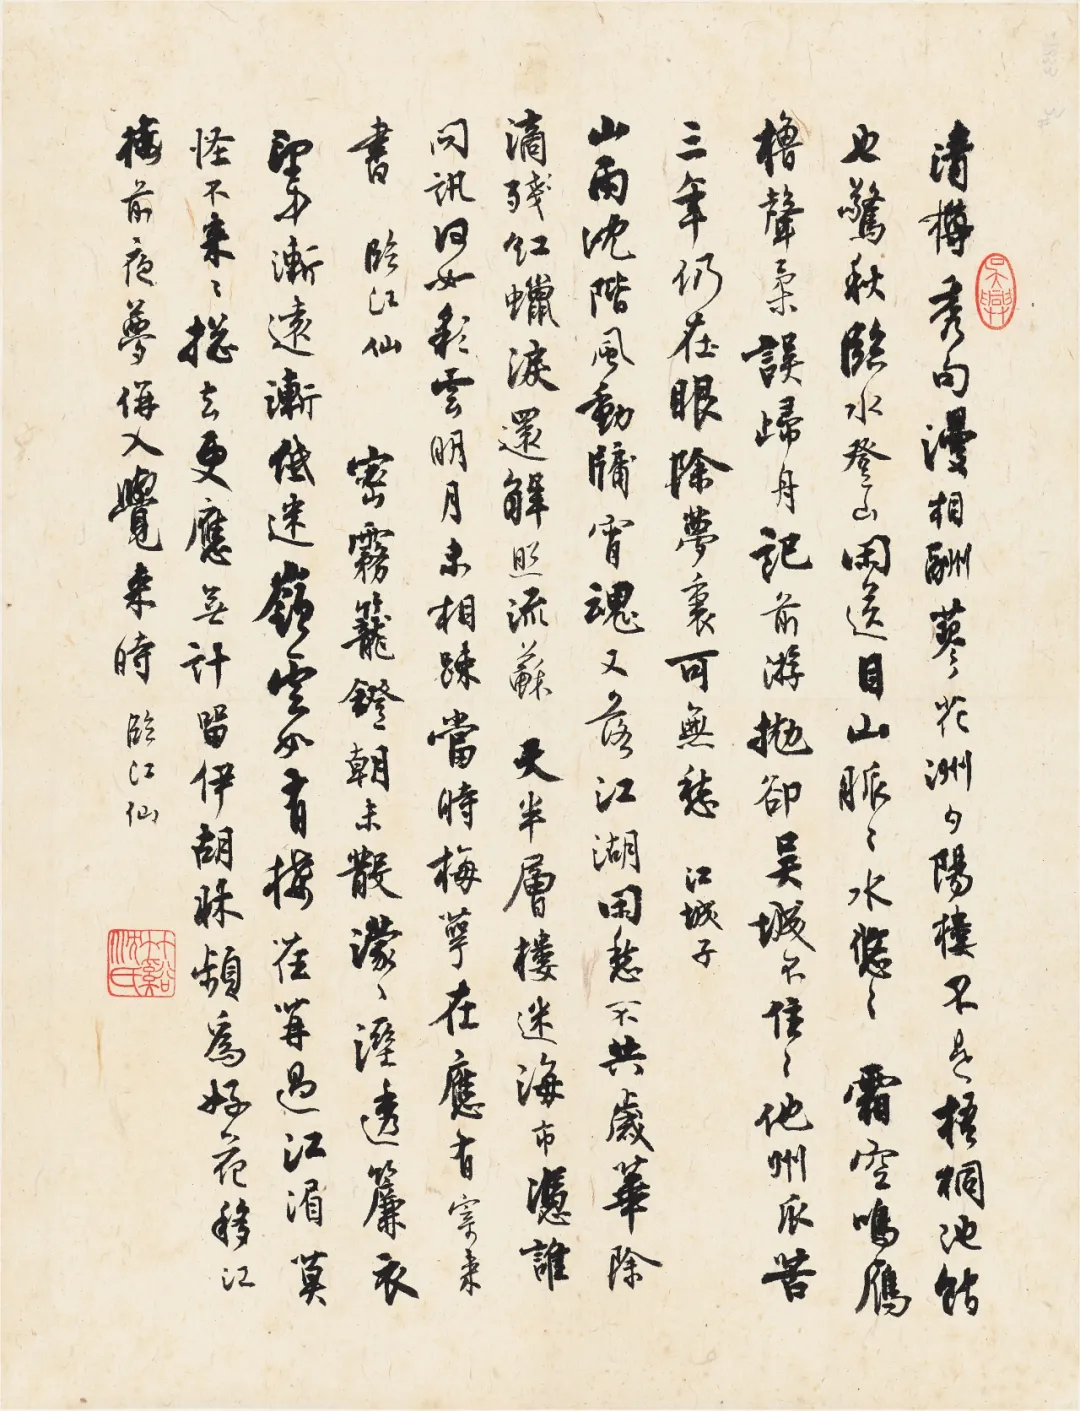 清樽秀句漫相酬蓼花洲夕陽樓不是梧桐池館
也驚秋臨水登山閑送目山脈〻水悠〻霜空鳴鴈
櫓聲柔誤歸舟記前游拋卻吳城不住〻他州瓜苦
三年仍在眼除夢裏可無愁江城子
山雨沈階風動牗宵魂又落江湖閑愁不共歲華除
滴殘紅蠟淚還解照流蘇天半層樓迷海市憑誰
問訊何如彩雲明月未相疎當時梅萼在應有寄來
書臨江仙密霧籠鐙朝未散濛〻溼透簾衣
望中漸遠漸低迷嶺雲如有樣並過江湄莫
怪不來〻摠去更應無計留伊胡牀頻為好花移江
樓前夜夢併入覺來時臨江仙
吳興
竹谿沈氏